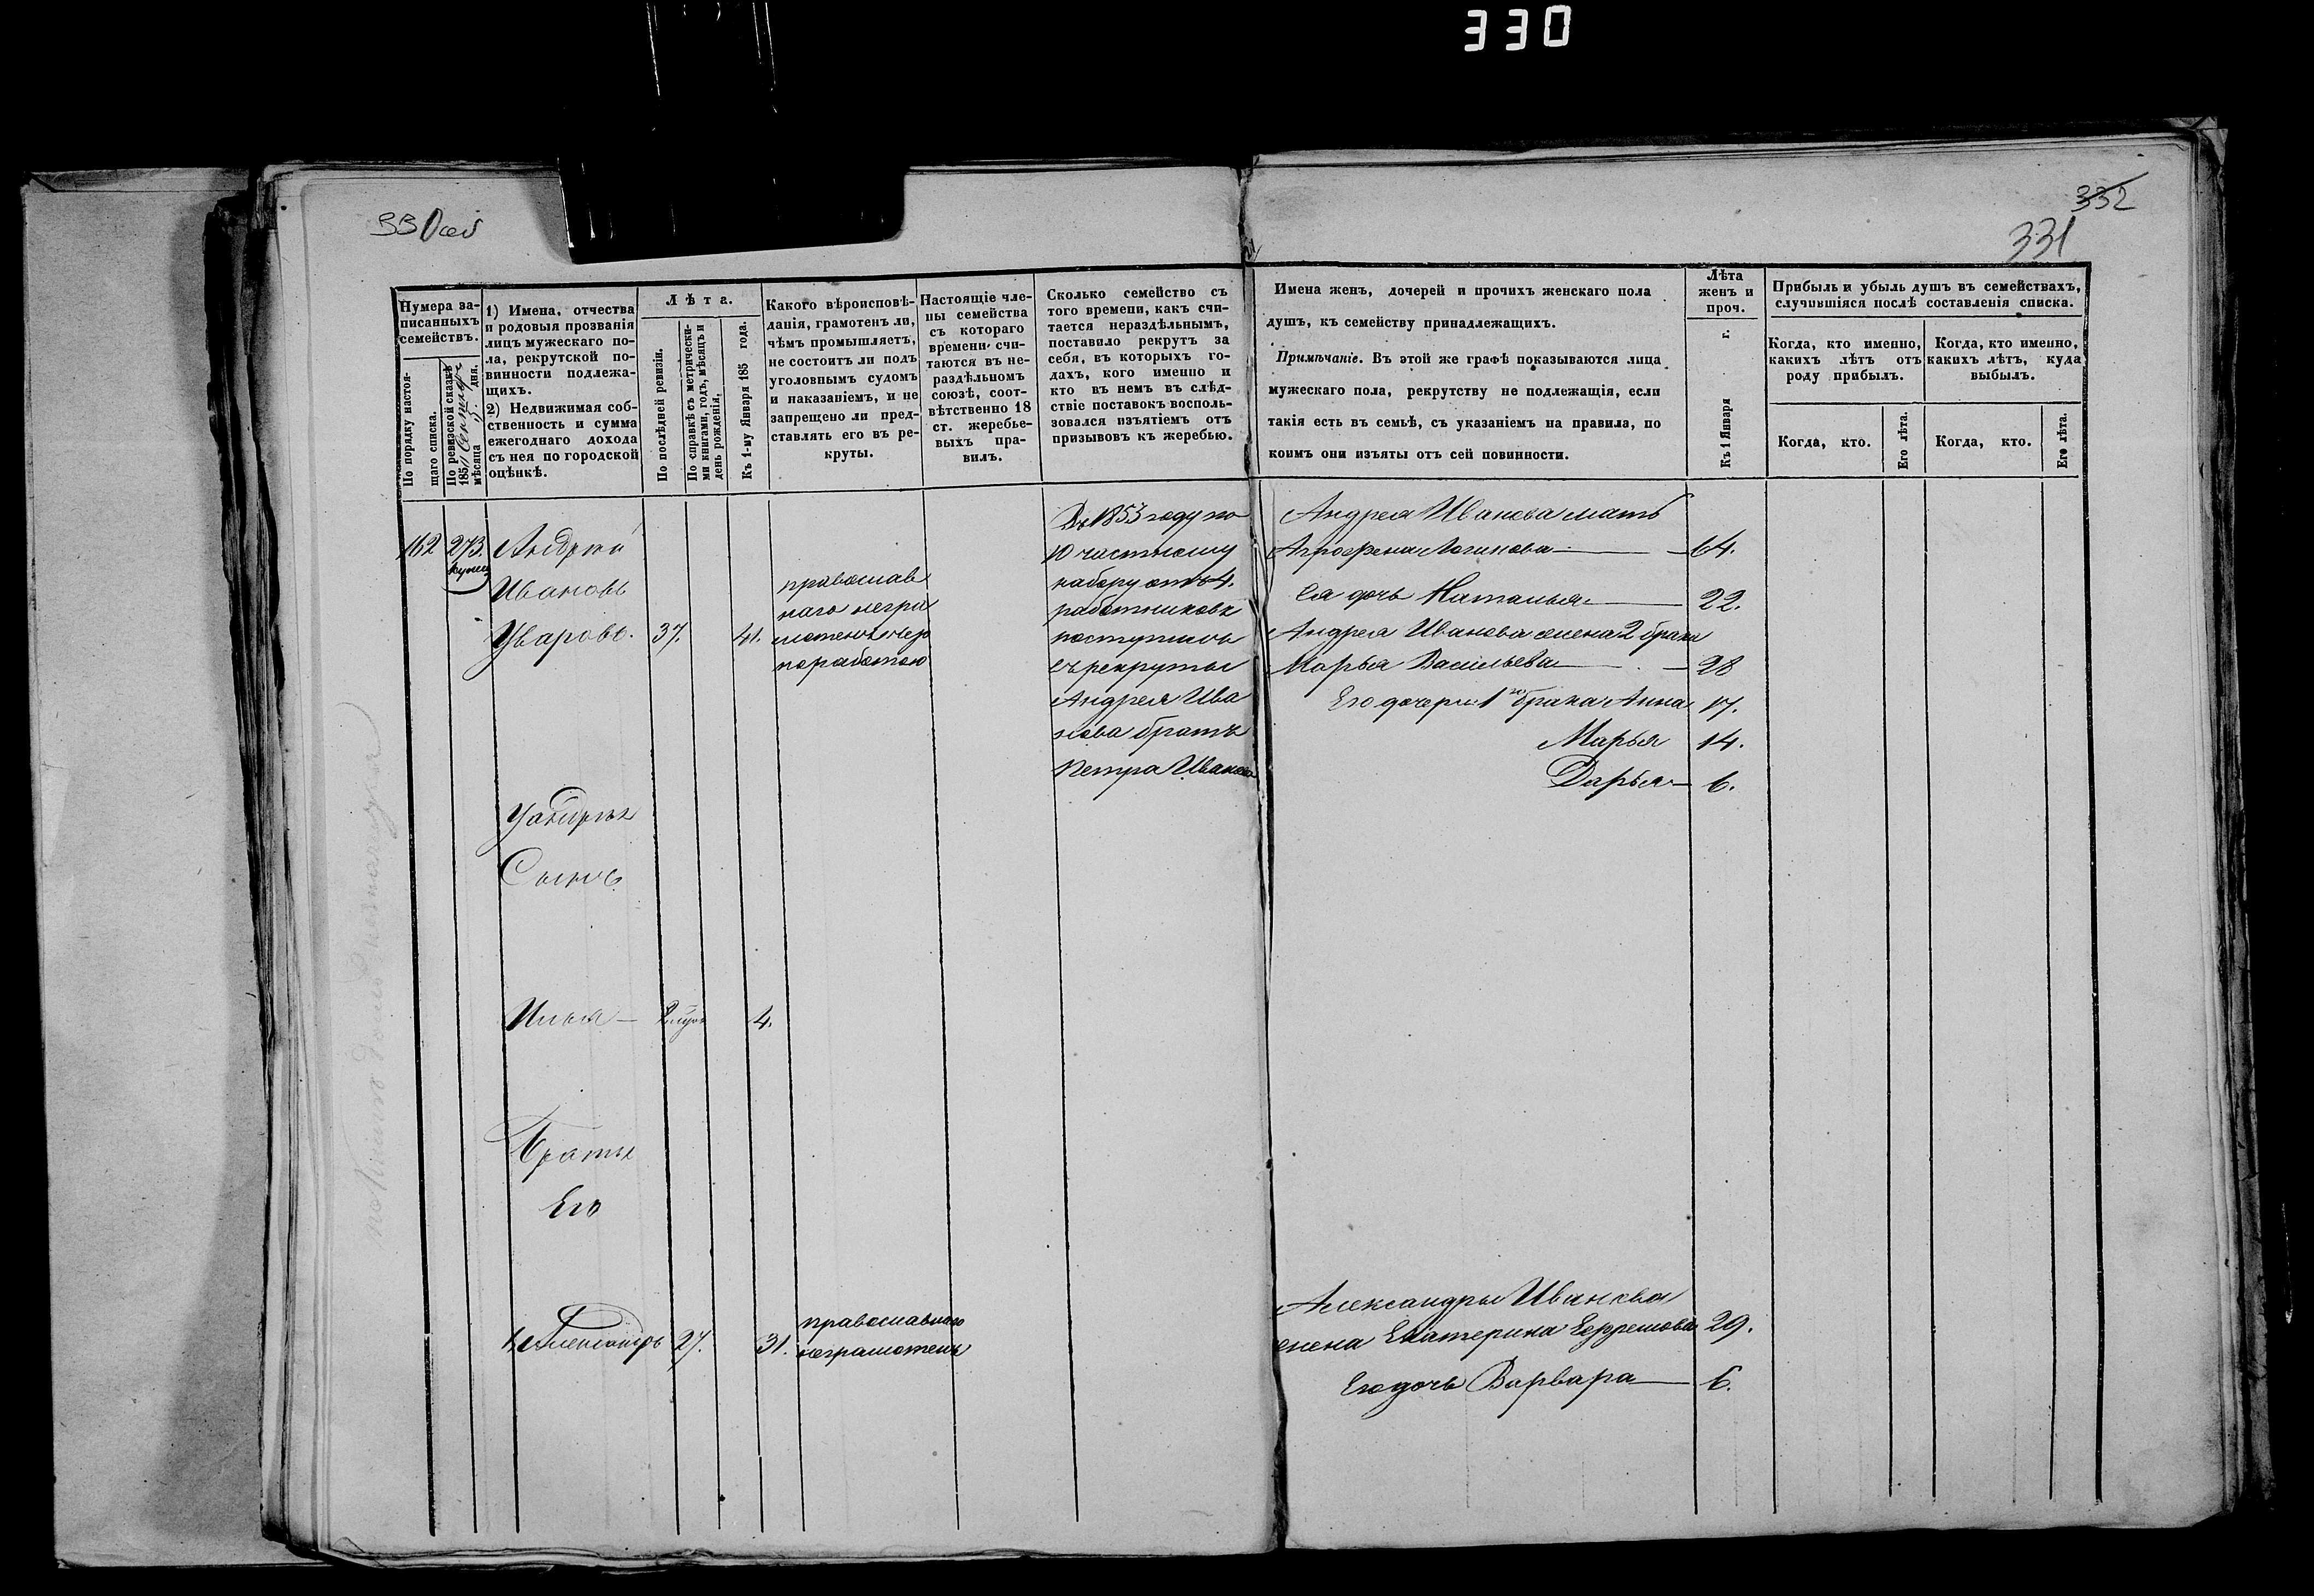 330
330об
332
331
Нумера записанныхъ семействъ.
По порядку настоящаго списка.
По ревизской сказкѣ 185 мѣсяца дня.
1) Имена, отчества
и родовыя прозванія
лицъ мужескаго по-
ла, рекрутской по-
винности подлежа-
щихъ.
2) Недвижимая соб-
ственность и сумма
ежегоднаго дохода
съ нея по городской
оцѣнкѣ.
Лѣта.
По послѣдней ревизіи.
По справкѣ съ метрически-
ми книгами, годъ, мѣсяцъ и
день рожденія.
Къ 1-му Января 185 года.
Какого вѣроисповѣ-
данія, грамотенъ ли,
чѣмъ промышляетъ,
не состоитъ ли подъ
уголовнымъ судомъ
и наказаніемъ, и не
запрещено ли пред-
ставлять его въ ре-
круты.
Настоящіе чле-
ны семейства
съ котораго
времени счи-
таются въ не-
раздѣльномъ
союзѣ, соот-
вѣтственно 18
ст. жеребье-
выхъ пра-
вилъ.
Сколько семейство съ
того времени, какъ счи-
тается нераздѣльнымъ,
поставило рекрутъ за
себя, въ которыхъ го-
дахъ, кого именно и
кто въ немъ въ слѣд-
ствіе поставокъ восполь-
зовался изъятіемъ отъ
призывовъ къ жеребью.
Имена женъ, дочерей и прочихъ женскаго пола
душъ, къ семейству принадлежащихъ.
Примѣчаніе. Въ этой же графѣ показываются лица
мужескаго пола, рекрутству не подлежащія, если
такія есть въ семьѣ, съ указаніемъ на правила, по
коимъ они изъяты отъ сей повинности.
Лѣта
женъ и
проч.
Къ 1 Января г.
Прибыль и убыль душъ въ семействахъ,
случившіяся послѣ составленія списка.
Когда, кто именно,
какихъ лѣтъ отъ
роду прибылъ.
Когда, кто именно,
какихъ лѣтъ, куда
выбылъ.
Когда, кто.
Его лѣта.
Когда, кто.
Его лѣта.
162 273. Андрей
Ивановъ
Уваровъ. 37. 41.
православ
наго негра
мотенъ чер
ноработою
Въ 1853 году по
10 частному
набору отъ 4.
работниковъ
поступилъ
въ рекруты
Андрея Ива
нова братъ
Петра Иванова
Андрея Иванова мать
Агрофена Логинова 64.
Ея дочь Наталья 22.
Андрея Иванова жена 2 брака
Марья Васильева 28
Его дочери 1го брака Анна 17.
Марья 14.
Дарья 6.
У Андрея
Сынъ
Илья 4.
Братъ
Его
Александръ 27. 31.
православнаго
неграмотенъ
Александры Иванова
жена Екатерина Ефремова 29.
Его дочь Варвара 6.